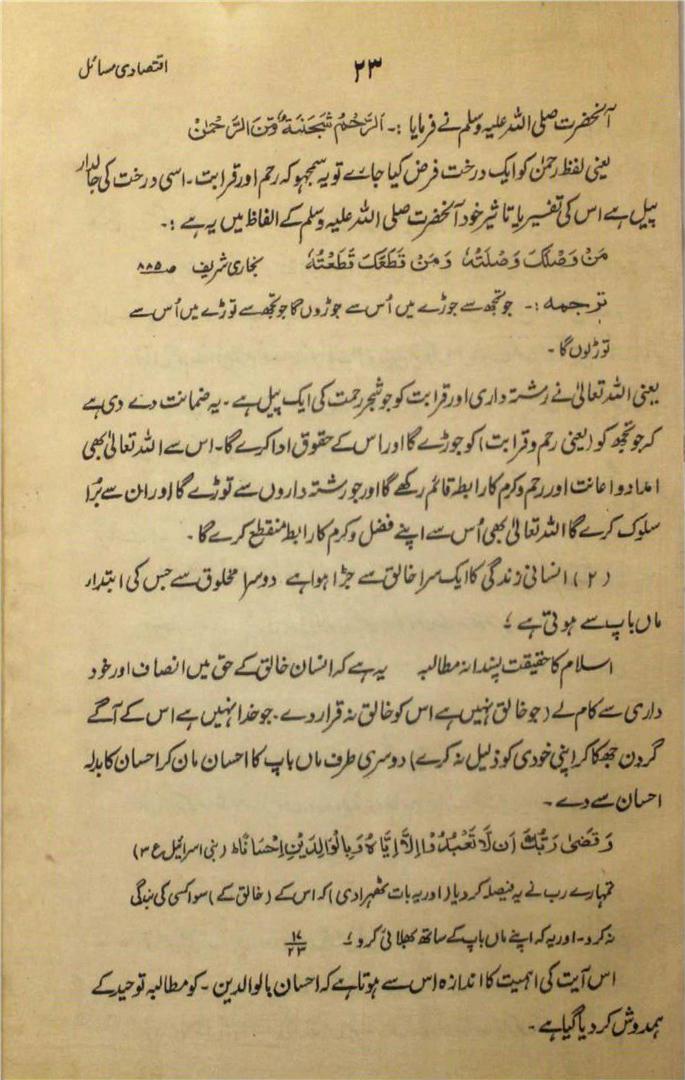 اقتصادی مسائل ۲۳
آنحضرت صلی اللہ علیہ وسلم نے فرمایا :۔ اَلرَّحْمُ شَجَنَةٌ مِّنَ الرَّحْمٰنْ
یعنی لفظ رحمٰن کو ایک درخت فرض کیا جائے تو یہ سمجھو کہ رحم اور قرابت ۔ اسی درخت کی جالدار
پیل ہے اس کی تفسیر یا تاثیر خود آنحضرت صلی اللہ علیہ وسلم کے الفاظ میں یہ ہے :۔
مَنْ وَصَلَكَ وَصَلْتُهُ وَمَنْ قَطَعَكَ قَطَعْتُهُ بخاری شریف صـ ۸۸۵
ترجمہ :۔ جو تجھ سے جوڑے میں اُس سے جوڑوں گا جو تجھ سے توڑے میں اُس سے
توڑلوں گا ۔
یعنی اللہ تعالیٰ نے رشتہ داری اور قرابت کو جو شجر رحمت کی ایک پیل ہے ۔ یہ ضمانت دے دی ہے
کہ جو تجھ کو (یعنی رحم و قرابت) کو جوڑے گا اور اس کے حقوق ادا کرے گا۔ اس سے اللہ تعالیٰ بھی
امداد و اعانت اور رحم و کرم کا رابطہ قائم رکھے گا اور جو رشتہ داروں سے توڑے گا اور ان سے بُرا
سلوک کرے گا اللہ تعالیٰ بھی اُس سے اپنے فضل و کرم کا رابطہ منقطع کرے گا ۔
(۲) انسانی زندگی کا ایک سرا خالق سے جڑا ہوا ہے دوسرا مخلوق سے جس کی ابتدار
ماں باپ سے ہوتی ہے ؛
اسلام کا حقیقت پسندانہ مطالبہ یہ ہے کہ انسان خالق کے حق میں انصاف اور خود
داری سے کام لے (جو خالق نہیں ہے اس کو خالق نہ قرار دے ۔ جو خدا نہیں ہے اس کے آگے
گردن جھکا کر اپنی خودی کو ذلیل نہ کرے) دوسری طرف ماں باپ کا احسان مان کر احسان کا بدلہ
احسان سے دے ۔
وَقَضٰى رَبُّكَ اَن لَّا تَعْبُدُوْا اِلَّا اِيَّاهُ وَبِالْوَالِدَيْنِ اِحْسَانًا ط (بنی اسرائیل ع ۳)
تمہارے رب نے یہ فیصلہ کر دیا (اور یہ بات ٹھہرادی) کہ اس کے (خالق کے) سوا کسی کی بندگی
نہ کرو ۔ اور یہ کہ اپنے ماں باپ کے ساتھ بھلائی کرو ؛ ۱۷/۲۳
اس آیت کی اہمیت کا اندازہ اس سے ہوتا ہے کہ احسان بالوالدین ۔ کو مطالبہ توحید کے
ہمدوش کر دیا گیا ہے ۔